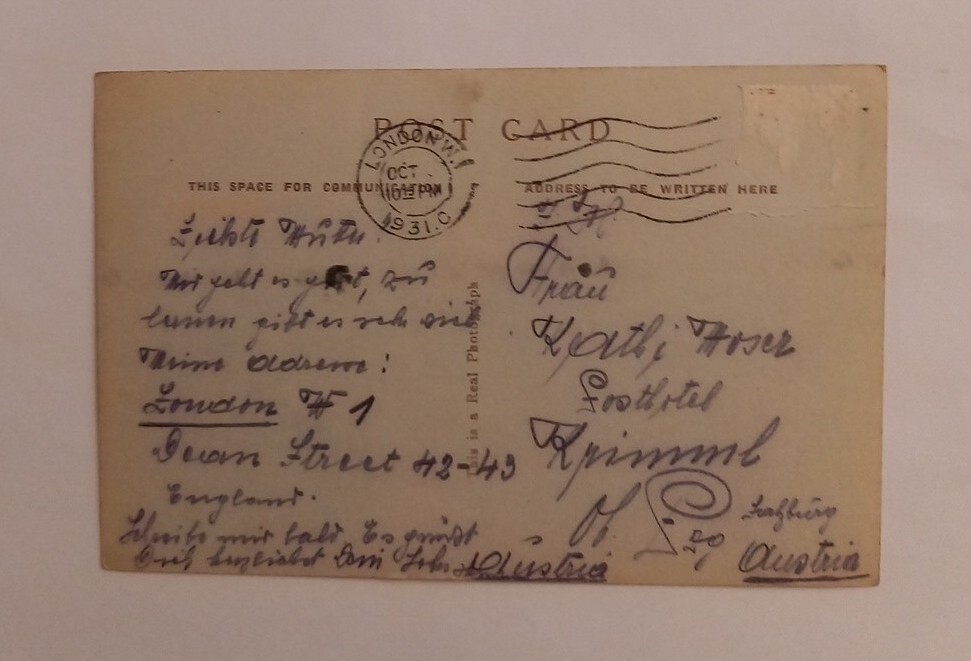 POST CARD
LONDON.W.1
OCT
1015 PM
1931.C
THIS SPACE FOR COMMUNICATION
ADDRESS TO BE WRITTEN HERE
Liebste Mutter.
Mir geht es gut, zu
lernen gibt es sehr viel
Meine Adresse:
London W 1
Dean Street 42-43
England.
Schreibe mir bald. Es grüßt
Dich herzlichst Dein Sohn
Austria
This is a Real Photograph
Frau
Kathi Moser
Posthotel
Krimml
Salzburg
Austria